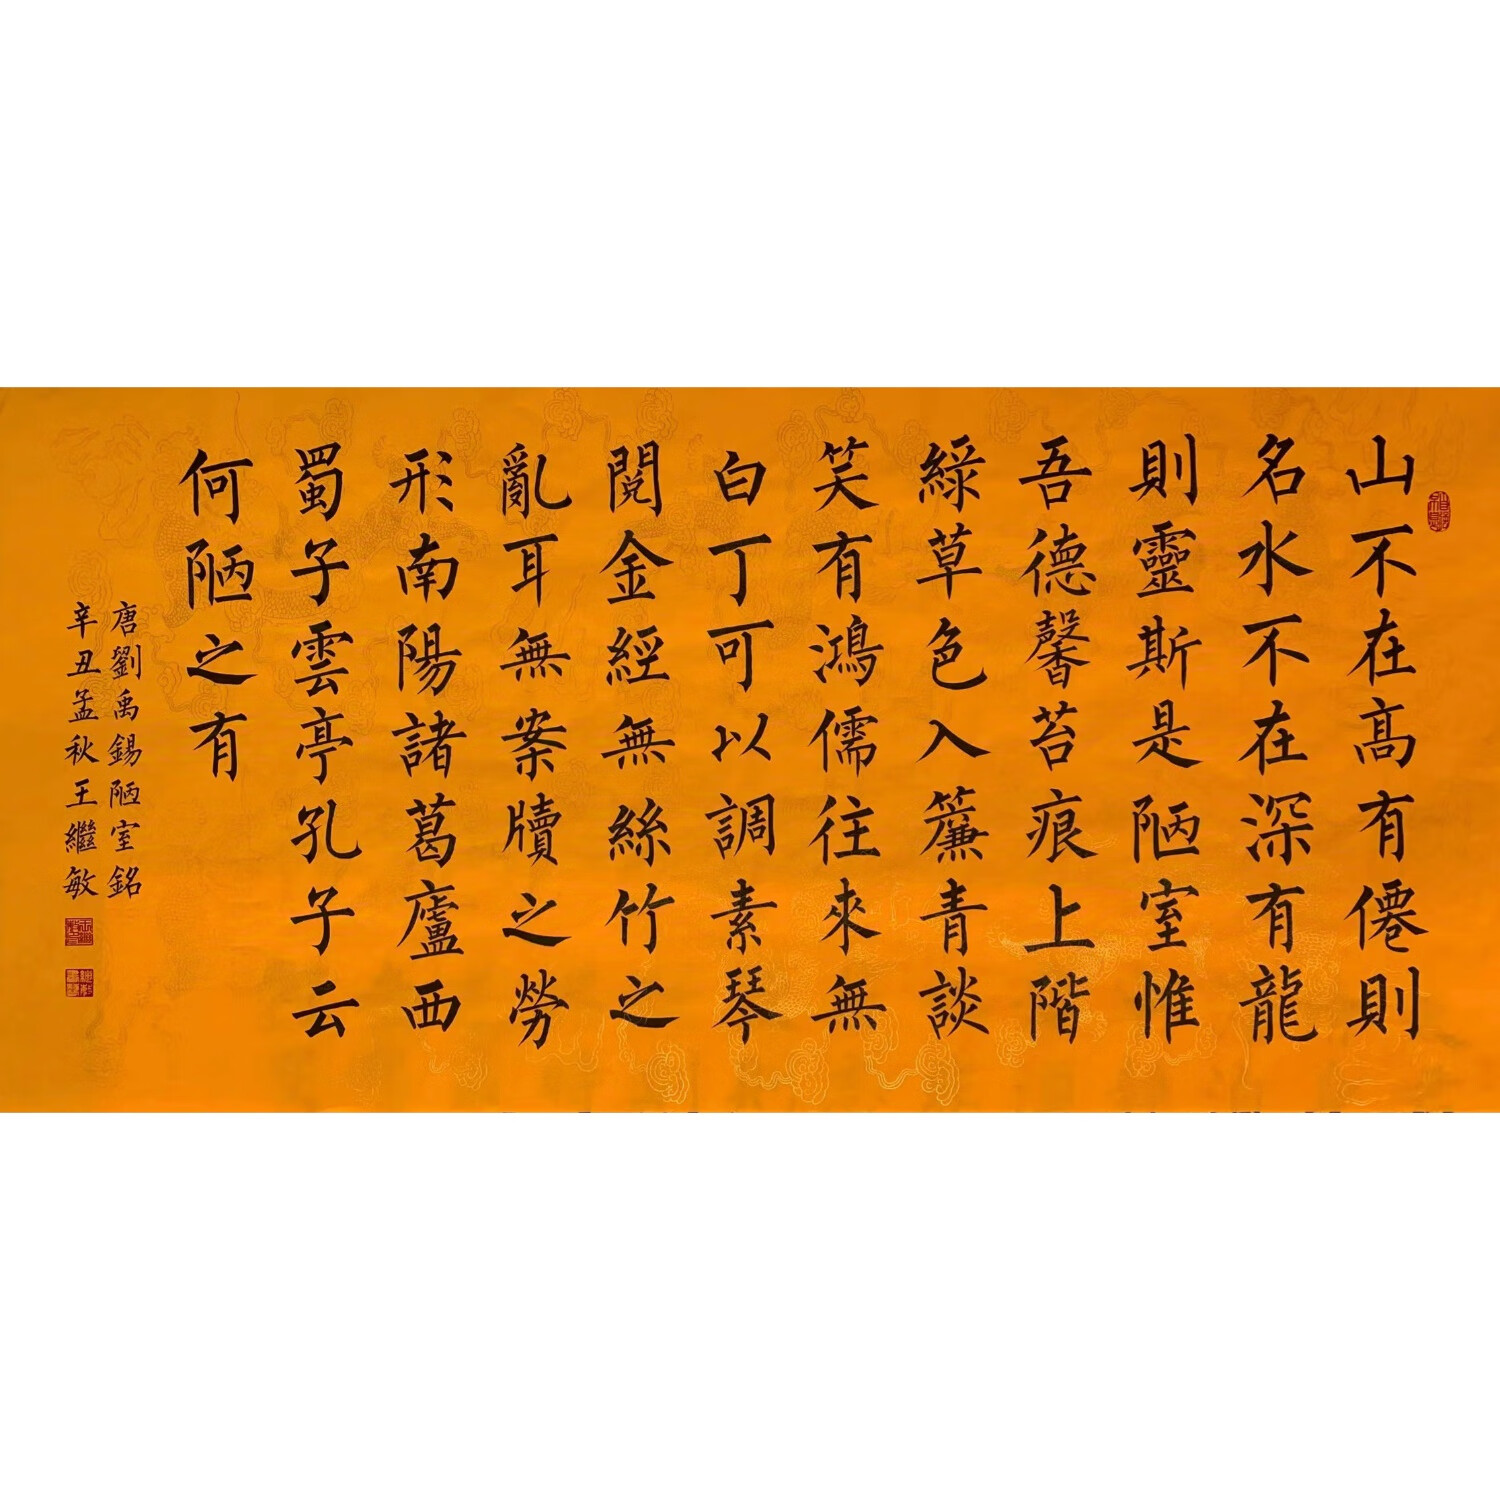 山不在高有僊則
名水不在深有龍
則靈斯是陋室惟
吾德馨苔痕上階
綠草色入簾青談
笑有鴻儒往來無
白丁可以調素琴
閱金經無絲竹之
亂耳無案牘之勞
形南陽諸葛廬西
蜀子雲亭孔子云
何陋之有
唐劉禹錫陋室銘
辛丑孟秋王繼敏